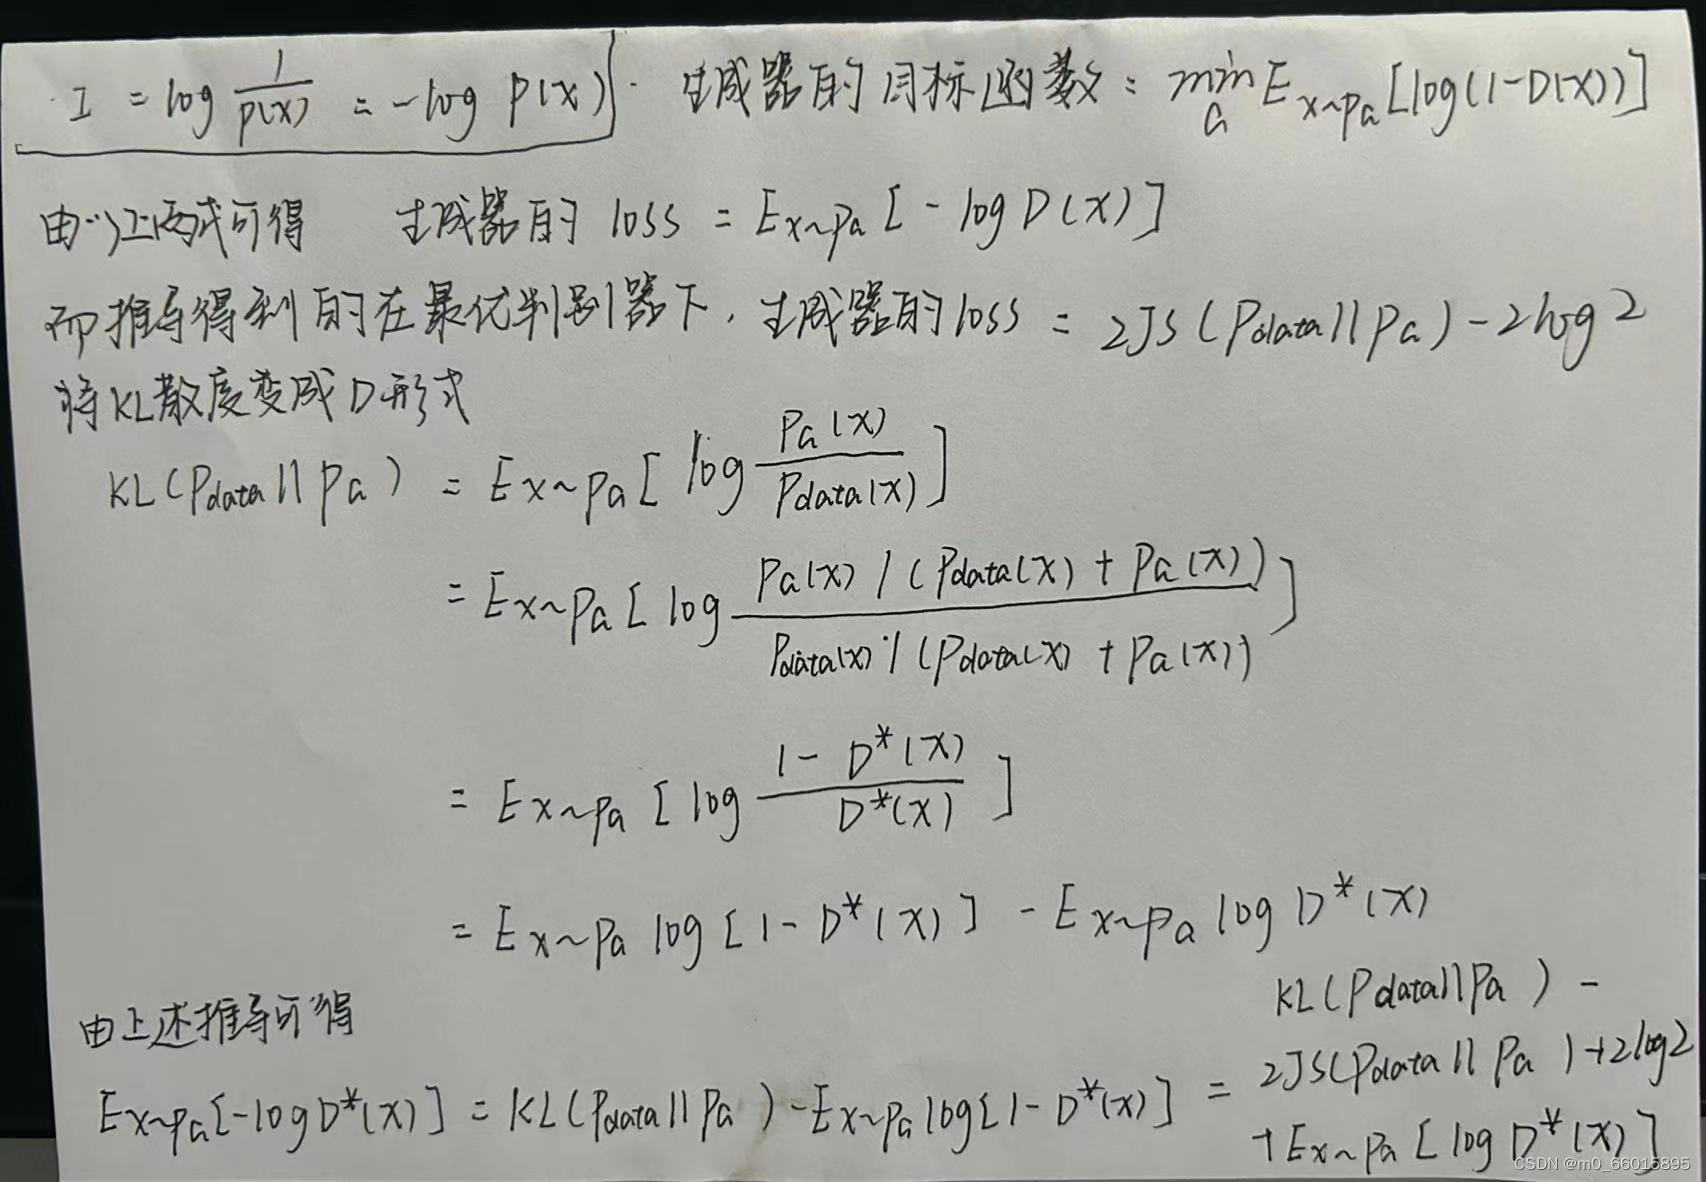 I = log 1/p(x) = -log p(x) 生成器的目标函数: min G E x~PG [log(1-D(x))]
由以上两式可得 生成器的 loss = E x~PG [-log D(x)]
而推导得到的在最优判别器下, 生成器的loss = 2JS(Pdata||PG)-2log2
将KL散度变成D形式
KL(Pdata||PG) = E x~PG [log PG(x)/Pdata(x)]
= E x~PG [log PG(x)/(Pdata(x)+PG(x)) / Pdata(x)/(Pdata(x)+PG(x))]
= E x~PG [log 1-D*(x)/D*(x)]
= E x~PG log[1-D*(x)] - E x~PG log D*(x)
由上述推导可得
E x~PG[-log D*(x)] = KL(Pdata||PG)-E x~PG log[1-D*(x)] = KL(Pdata||PG)-
2JS(Pdata||PG)+2log2
+E x~PG [log D*(x)]
CSDN @m0_66015895